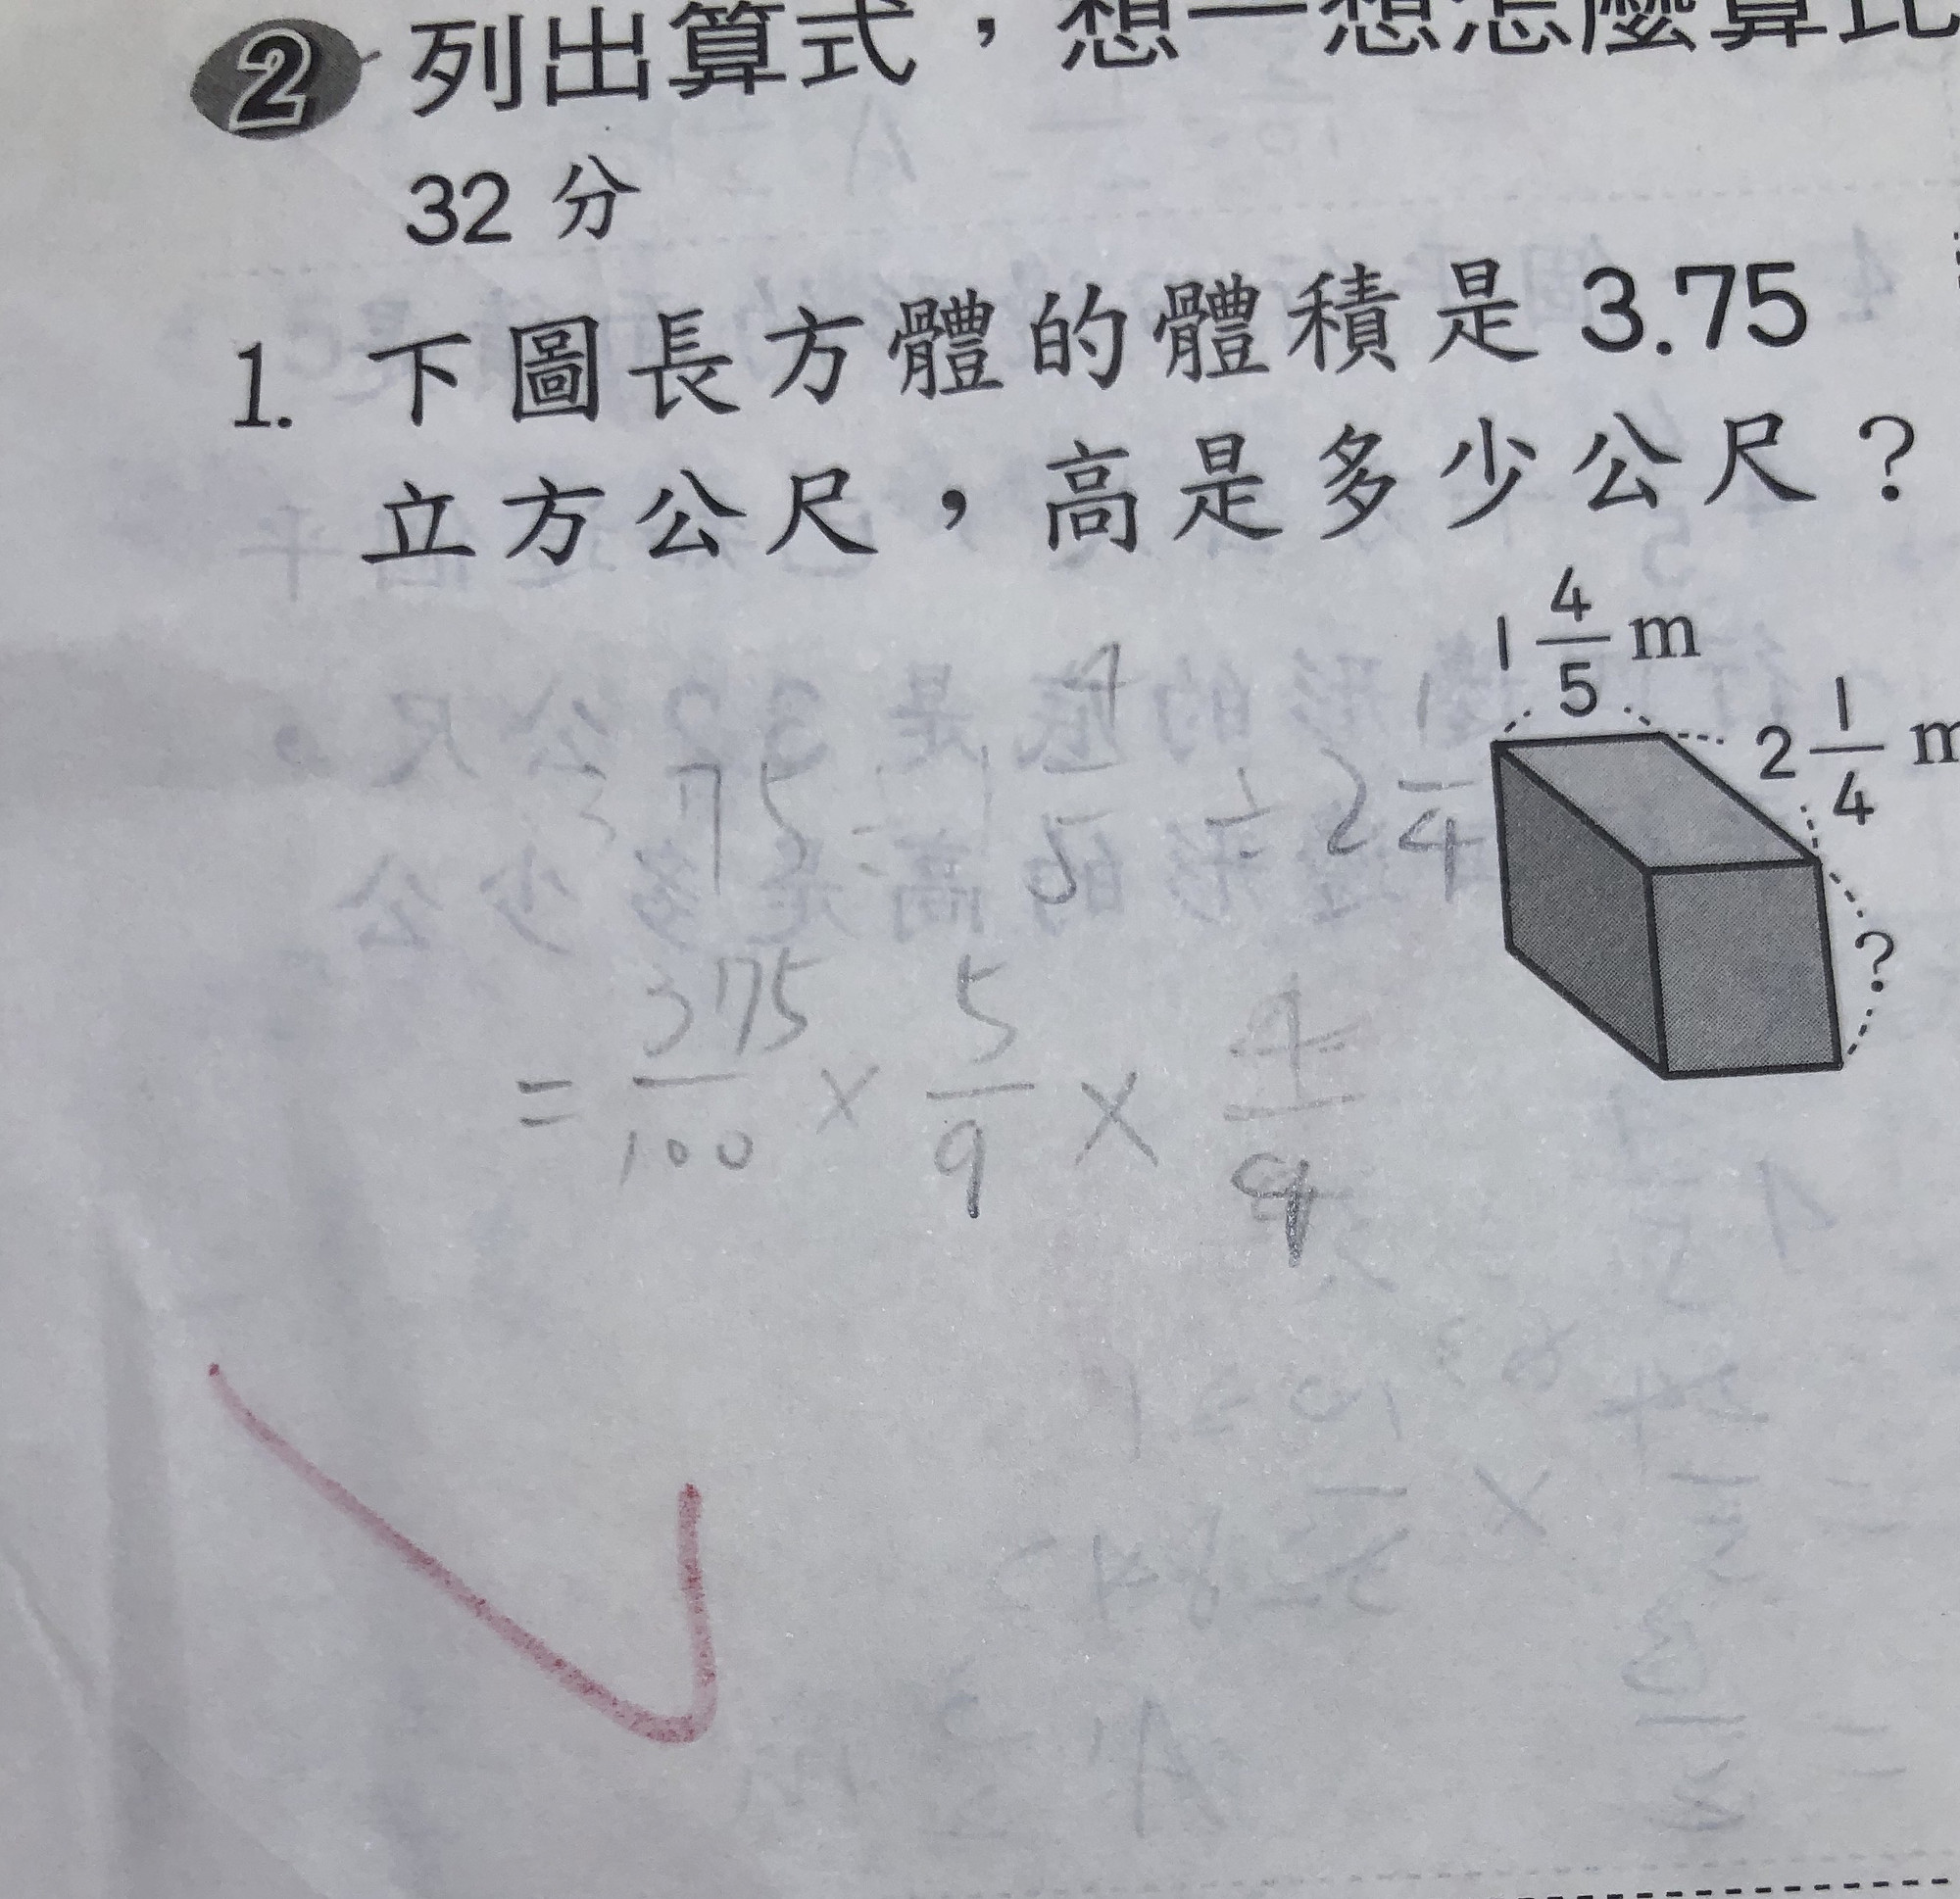 2 列出算式，想一想怎麼算比
32 分
1. 下圖長方體的體積是 3.75
立方公尺，高是多少公尺？
1 4/5 m
2 1/4 m
?
3.75 ÷ 1 4/5 ÷ 2 1/4
= 375/100 × 5/9 × 4/9